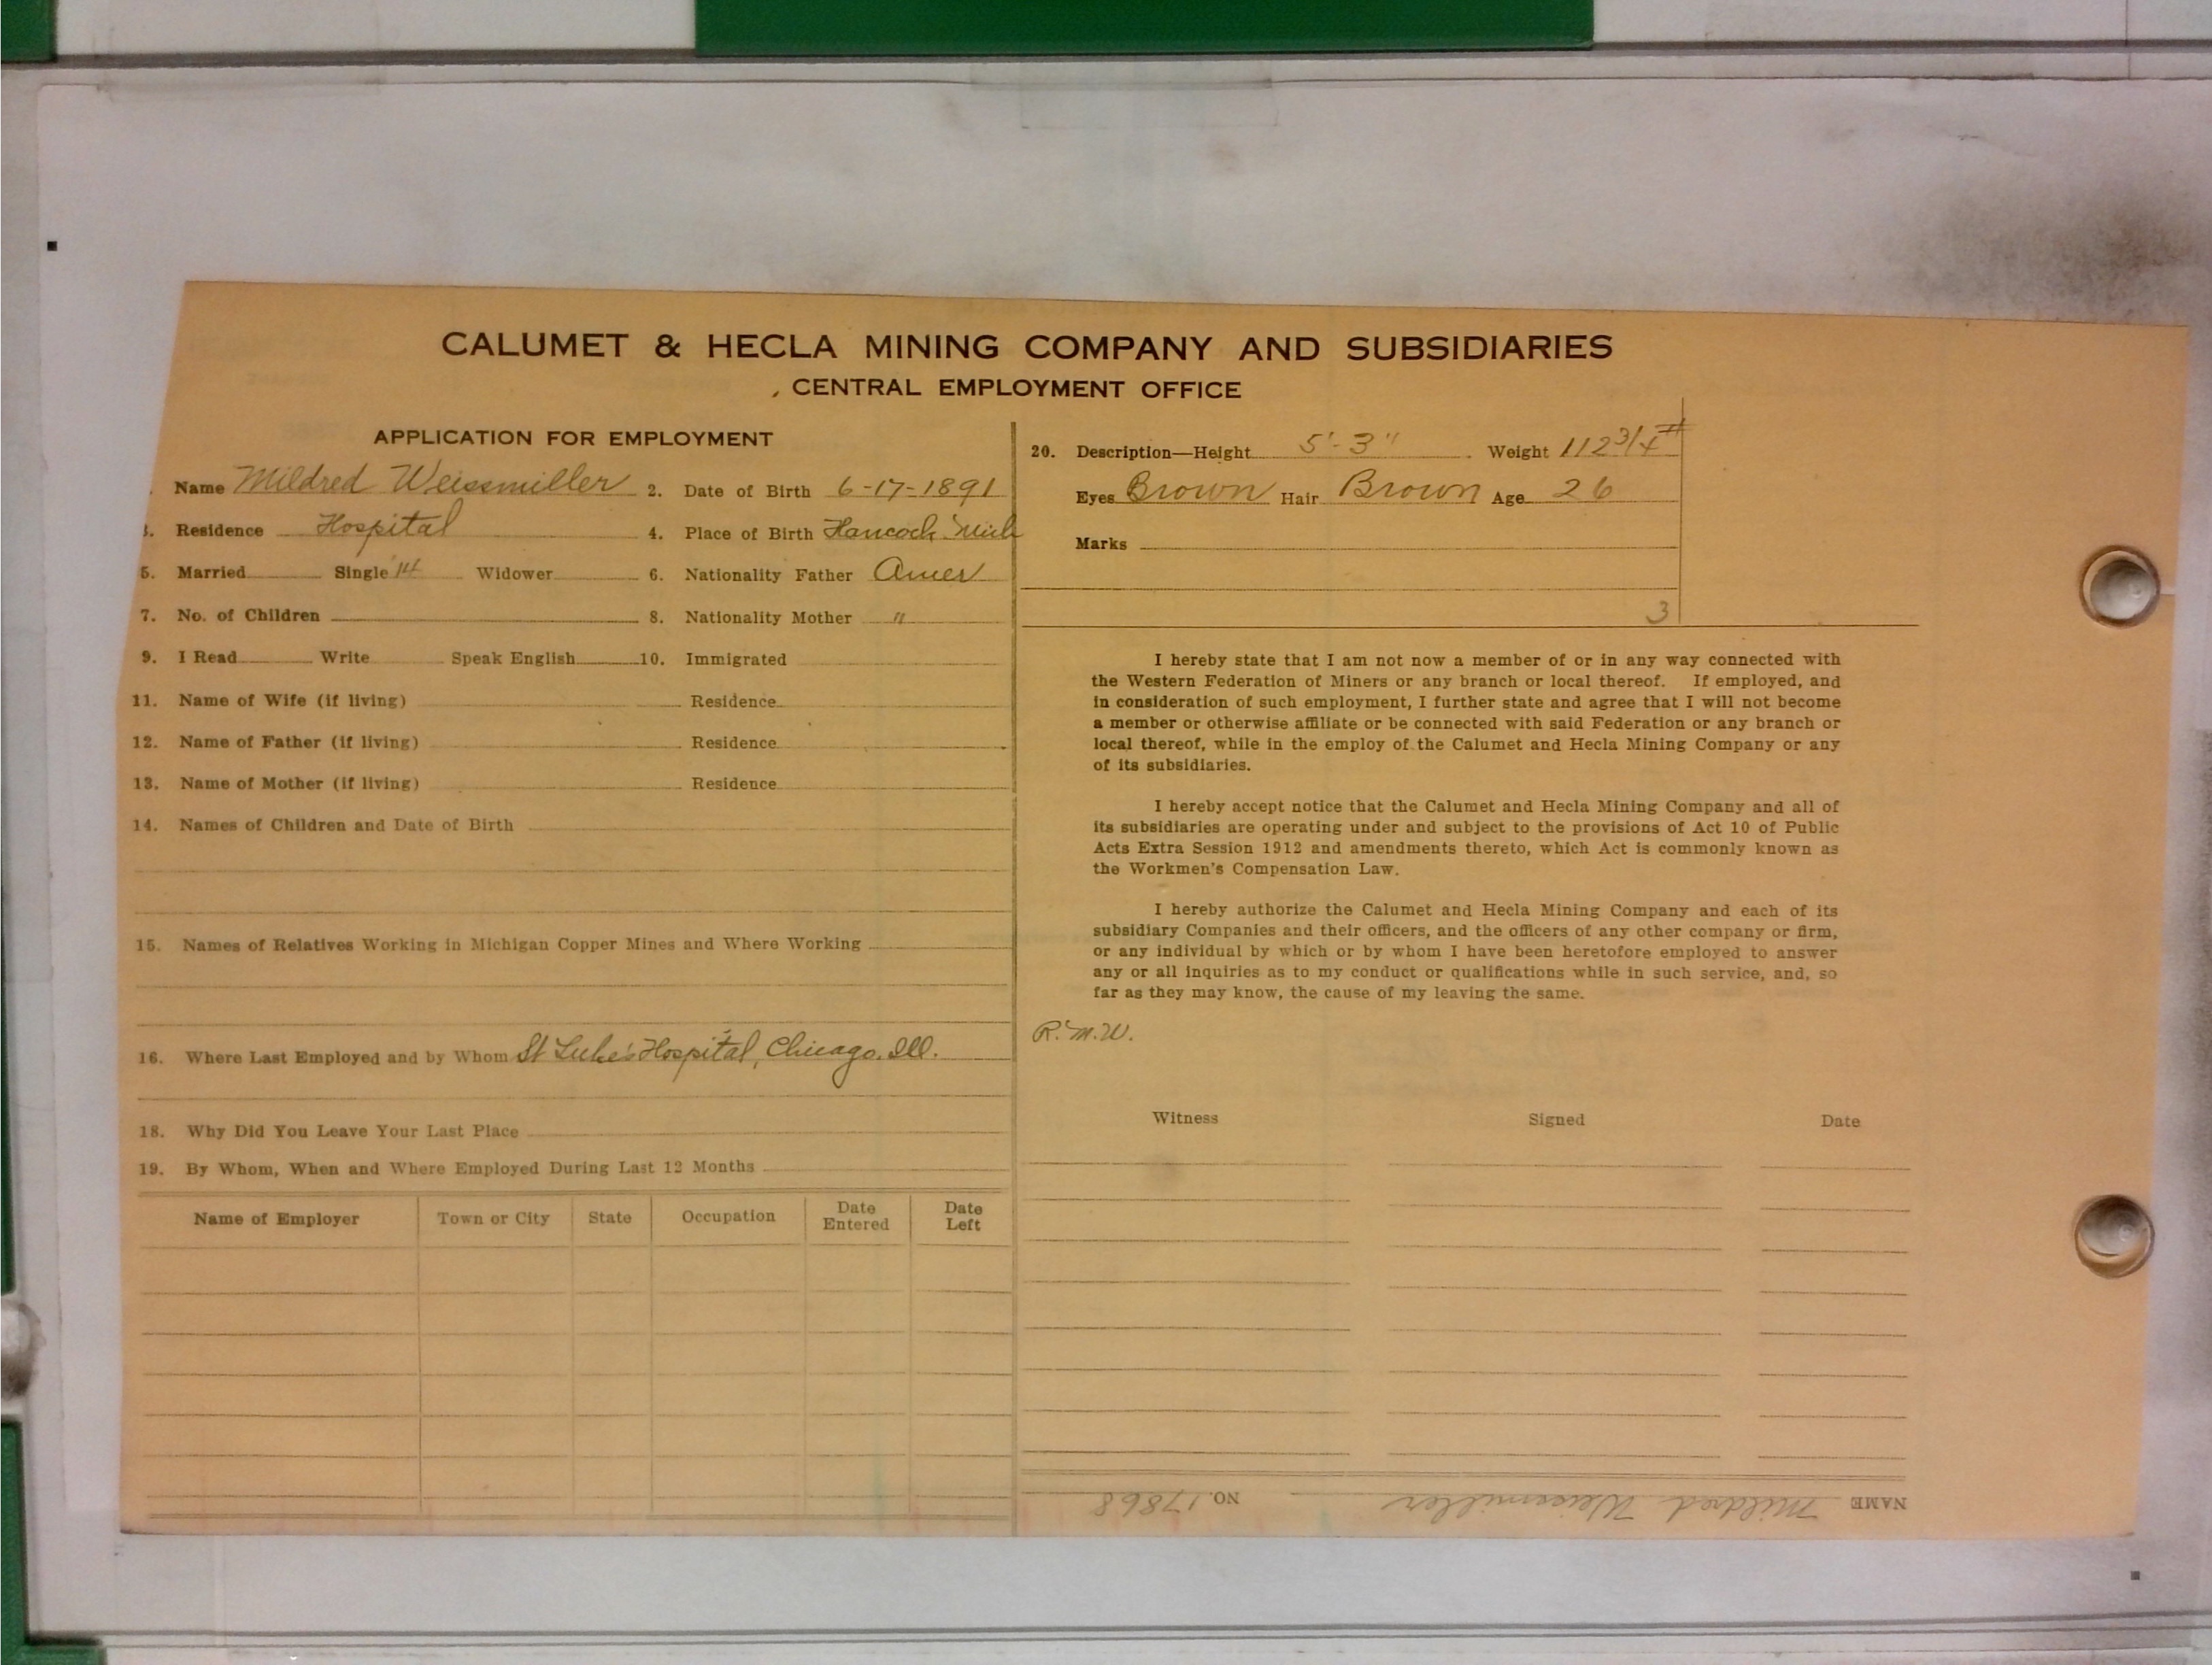 CALUMET & HECLA MINING COMPANY AND SUBSIDIARIES
CENTRAL EMPLOYMENT OFFICE
APPLICATION FOR EMPLOYMENT
Name Mildred Weissmiller 2. Date of Birth 6-17-1891
3. Residence Hospital 4. Place of Birth Hancock Mich
5. Married Single Widower 6. Nationality Father Amer
7. No. of Children 8. Nationality Mother "
9. I Read Write Speak English 10. Immigrated
11. Name of Wife (if living) Residence
12. Name of Father (if living) Residence
13. Name of Mother (if living) Residence
14. Names of Children and Date of Birth
15. Names of Relatives Working in Michigan Copper Mines and Where Working
16. Where Last Employed and by Whom St Luke's Hospital, Chicago, Ill.
18. Why Did You Leave Your Last Place
19. By Whom, When and Where Employed During Last 12 Months
Name of Employer Town or City State Occupation Date Entered Date Left
20. Description—Height 5'-3" Weight 112 3/4 #
Eyes Brown Hair Brown Age 26
Marks
3
I hereby state that I am not now a member of or in any way connected with
the Western Federation of Miners or any branch or local thereof. If employed, and
in consideration of such employment, I further state and agree that I will not become
a member or otherwise affiliate or be connected with said Federation or any branch or
local thereof, while in the employ of the Calumet and Hecla Mining Company or any
of its subsidiaries.
I hereby accept notice that the Calumet and Hecla Mining Company and all of
its subsidiaries are operating under and subject to the provisions of Act 10 of Public
Acts Extra Session 1912 and amendments thereto, which Act is commonly known as
the Workmen's Compensation Law.
I hereby authorize the Calumet and Hecla Mining Company and each of its
subsidiary Companies and their officers, and the officers of any other company or firm,
or any individual by which or by whom I have been heretofore employed to answer
any or all inquiries as to my conduct or qualifications while in such service, and, so
far as they may know, the cause of my leaving the same.
R.M.W.
Witness Signed Date
NAME Mildred Weissmiller NO. 17868